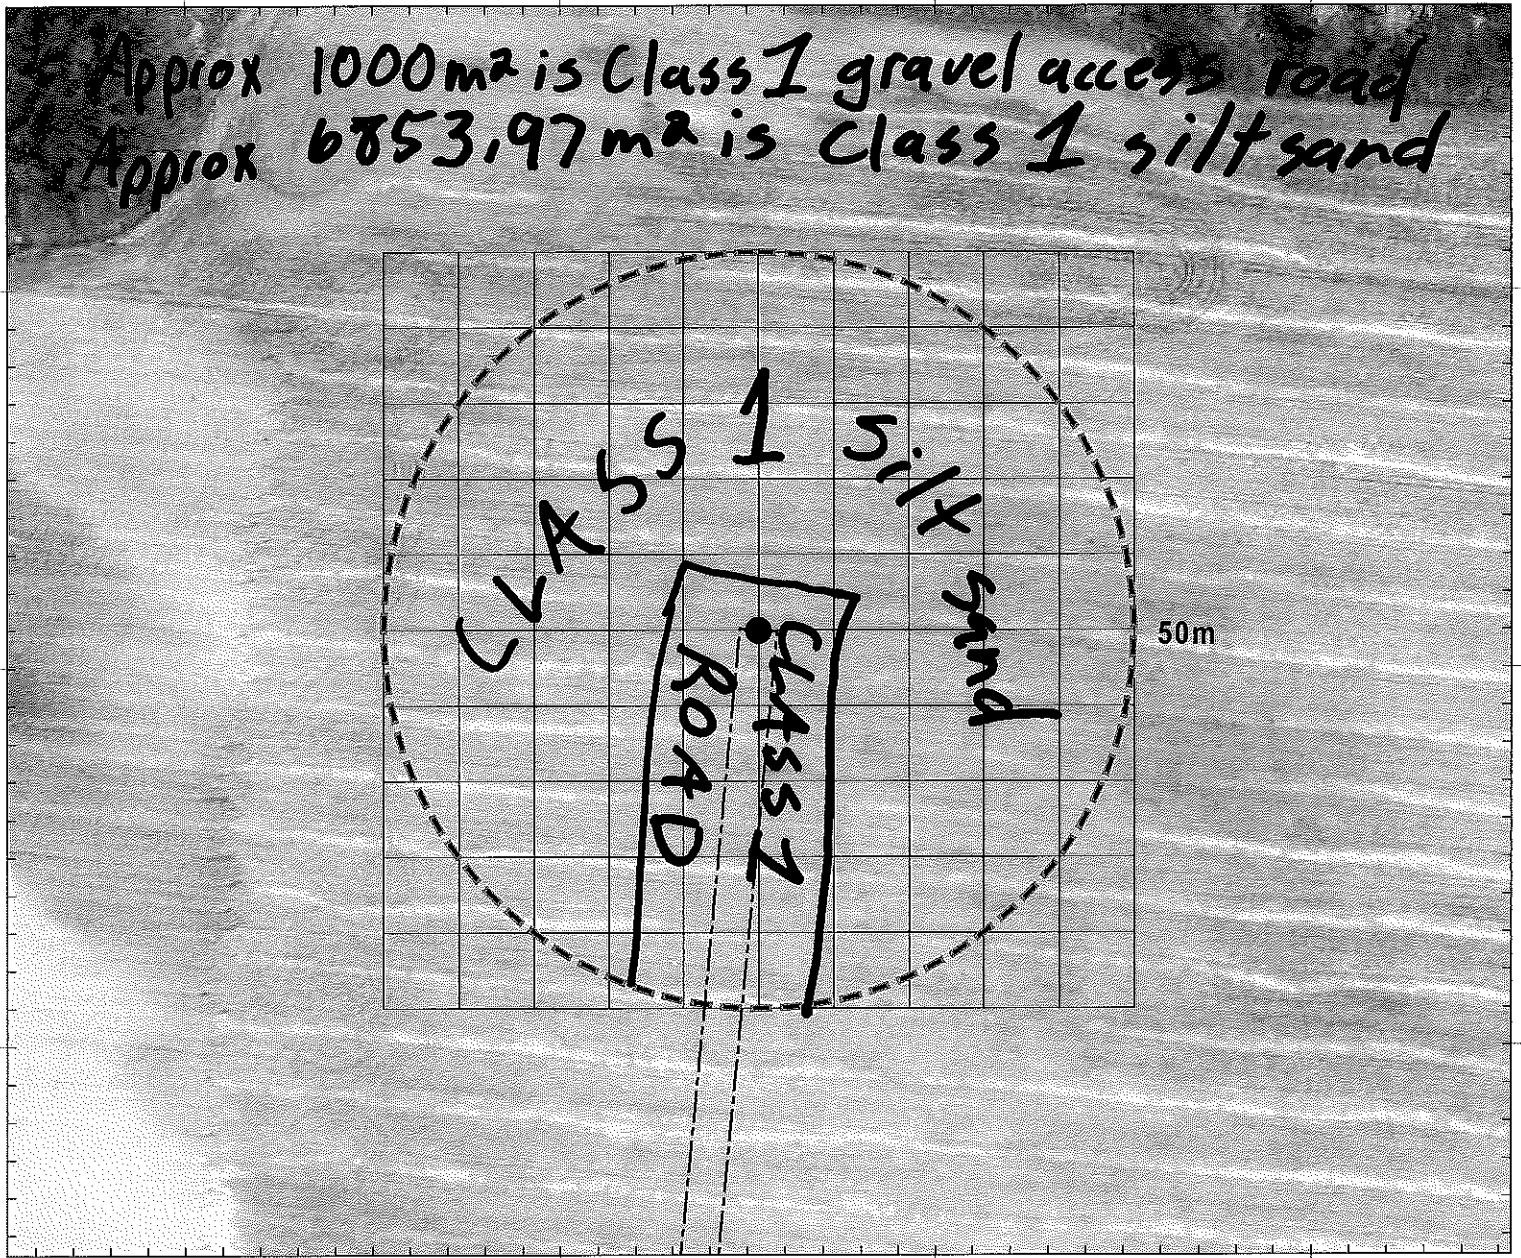 Approx 1000m² is Class 1 gravel access road
Approx 6853.97m² is Class 1 silt sand
CLASS 1 Silt Sand
50m
CLASS 1
ROAD